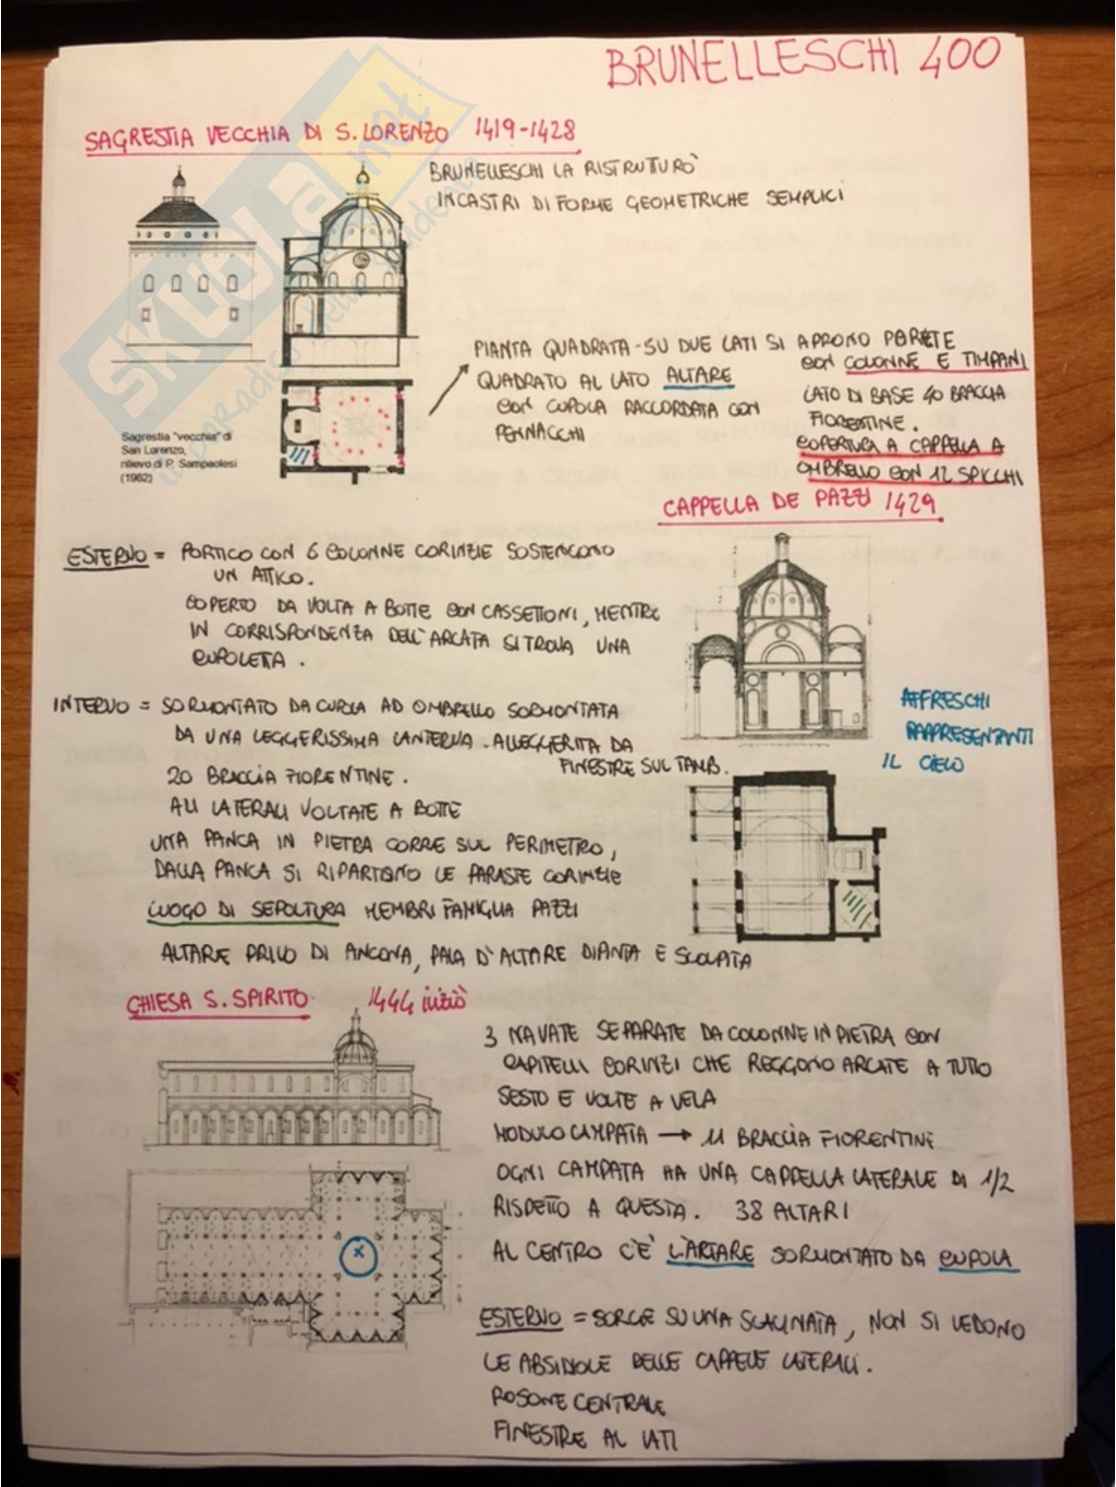 BRUNELLESCHI 400
SAGRESTIA VECCHIA DI S. LORENZO 1419-1428
BRUNELLESCHI LA RISTRUTTURÒ
INCASTRI DI FORME GEOMETRICHE SEMPLICI
SKUOLA.net
Sagrestia "vecchia" di
San Lorenzo,
rilievo di P. Sampaolesi
(1962)
PIANTA QUADRATA - SU DUE LATI SI APRONO PARETE
CON COLONNE E TIMPANI
QUADRATO AL LATO ALTARE
CON CUPOLA RACCORDATA CON
PENNACCHI
LATO DI BASE 40 BRACCIA
FIORENTINE.
COPERTURA A CAPPELLA A
OMBRELLO CON 12 SPICCHI
CAPPELLA DE PAZZI 1429
ESTERNO = PORTICO CON 6 COLONNE CORINZIE SOSTENGONO
UN ATTICO.
COPERTO DA VOLTA A BOTTE CON CASSETTONI, MENTRE
IN CORRISPONDENZA DELL'ARCATA SI TROVA UNA
CUPOLETA.
INTERNO = SORMONTATO DA CUPOLA AD OMBRELLO SORMONTATA
DA UNA LEGGERISSIMA LANTERNA. ALLEGGERITA DA
FINESTRE SUL TAMB.
20 BRACCIA FIORENTINE.
ALI LATERALI VOLTATE A BOTTE
UNA PANCA IN PIETRA CORRE SUL PERIMETRO,
DALLA PANCA SI RIPARTONO LE PARASTE CORINZIE
LUOGO DI SEPOLTURA MEMBRI FAMIGLIA PAZZI
ALTARE PRIVO DI ANCONA, PALA D'ALTARE DIPINTA E SCOLPITA
AFFRESCHI
RAPPRESENTANTI
IL CIELO
CHIESA S. SPIRITO 1444 iniziò
3 NAVATE SEPARATE DA COLONNE IN PIETRA CON
CAPITELLI CORINZI CHE REGGONO ARCATE A TUTTO
SESTO E VOLTE A VELA
MODULO CAMPATA → 11 BRACCIA FIORENTINE
OGNI CAMPATA HA UNA CAPPELLA LATERALE DI 1/2
RISPETTO A QUESTA. 38 ALTARI
AL CENTRO C'È L'ARTARE SORMONTATO DA CUPOLA
X
ESTERNO = SORGE SU UNA SCALINATA, NON SI VEDONO
LE ABSIDIOLE DELLE CAPPELE LATERALI.
ROSONE CENTRALE
FINESTRE AI LATI